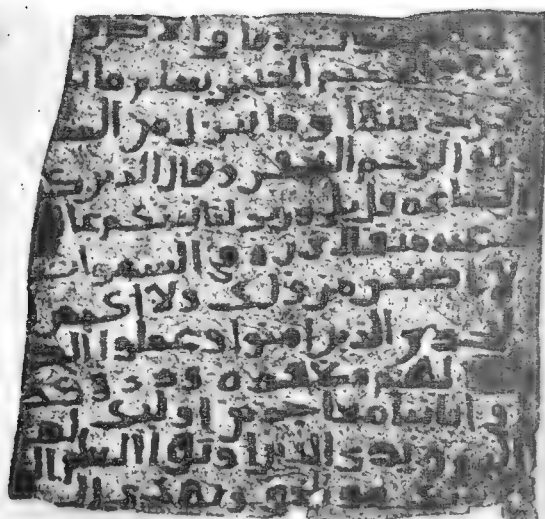 وما في الا
الحكيم الخبير يعلم ما يـ
يخرج منها وما ينزل من السـ
وهو الرحيم الغفور وقال الذين كـ
الساعه قل بلى وربي لتاتينكم عا
عنه مثقال ذره في السموت
اصغر من ذلك ولا اكبر
ليجزي الذين امنوا وعملوا الصـ
لهم مغفره ورزق كر
في ايتنا معجزين اوليك لهم
ويرى الذين اوتوا العلم ا
هو الحق ويهدي الى